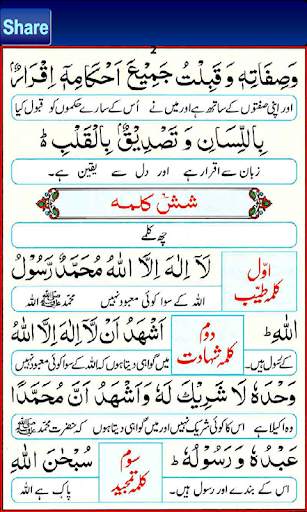 Share
2
وَصِفَاتِهٖ وَقَبِلْتُ جَمِيْعَ اَحْكَامِهٖٓ اِقْرَارٌۢ
اور اپنی صفتوں کے ساتھ ہے اور میں نے اُس کے سارے حکموں کو قبول کیا
بِاللِّسَانِ وَ تَصْدِيْقٌۢ بِالْقَلْبِ ؕ
زبان سے اقرار ہے اور دل سے یقین ہے۔
شش کلمہ
چھ کلمے
اوّل کلمہ طیّب
لَآ اِلٰهَ اِلَّا اللّٰهُ مُحَمَّدٌ رَّسُوْلُ
اللہ کے سوا کوئی معبود نہیں محمد ﷺ اللہ
اللّٰهِ ؕ
دوم کلمہ شہادت
اَشْهَدُ اَنْ لَّآ اِلٰهَ اِلَّا اللّٰهُ
کے رسول ہیں۔ میں گواہی دیتا ہوں کہ اللہ کے سوا کوئی معبود نہیں
وَحْدَهٗ لَا شَرِيْكَ لَهٗ وَاَشْهَدُ اَنَّ مُحَمَّدًا
وہ اکیلا ہے اس کا کوئی شریک نہیں اور میں گواہی دیتا ہوں کہ حضرت محمد ﷺ
عَبْدُهٗ وَ رَسُوْلُهٗ ؕ
سوم کلمہ تمجید
سُبْحٰنَ اللّٰهِ
اس کے بندے اور رسول ہیں۔ پاک ہے اللہ